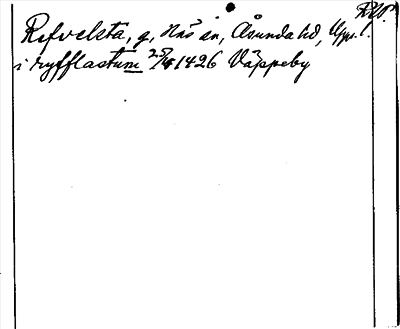 RW.
Refvelsta, g, Näs sn, Åsunda hd, Upp. l.
i ryfflastum 25/4 1426 Väppeby